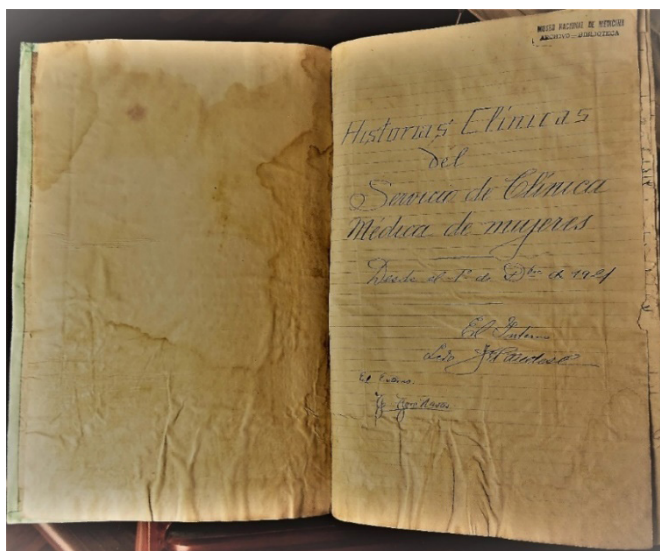 MUSEO NACIONAL DE MEDICINA
ARCHIVO - BIBLIOTECA
Historias Clínicas
del
Servicio de Clínica
Médica de mujeres
Desde el 1º de de 1921
El Interno
El Externo